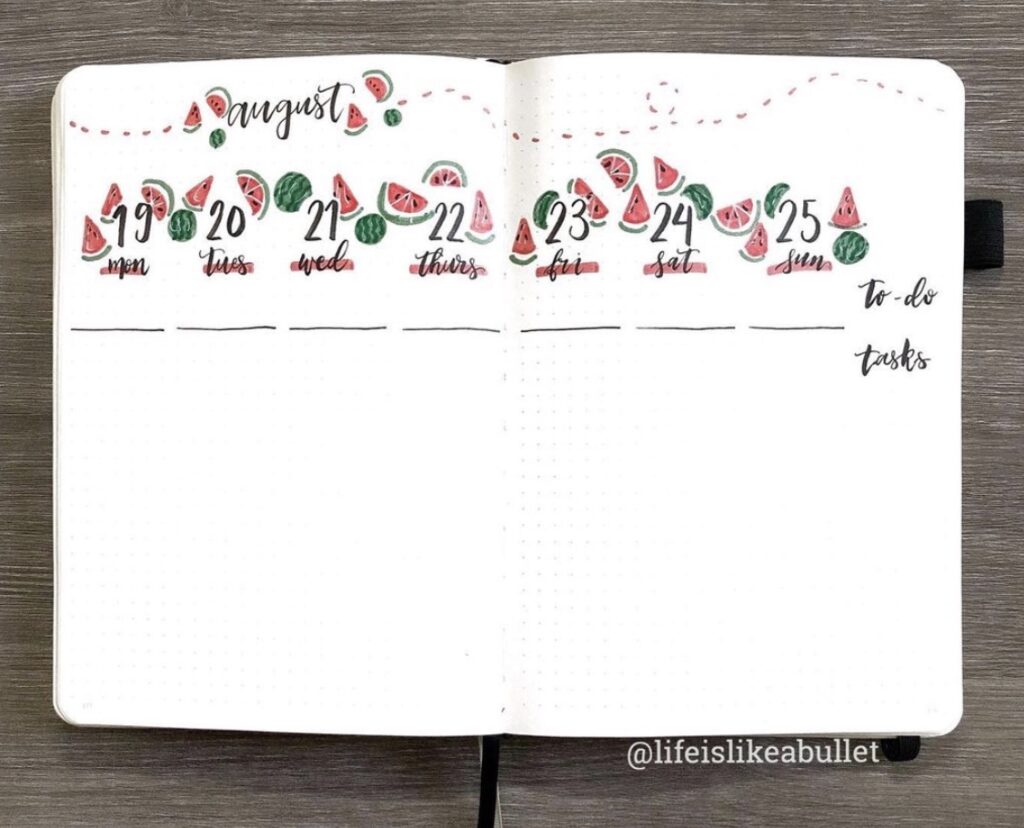 august
19 20 21 22 23 24 25
mon tues wed thurs fri sat sun
to-do
tasks
@lifeislikeabullet